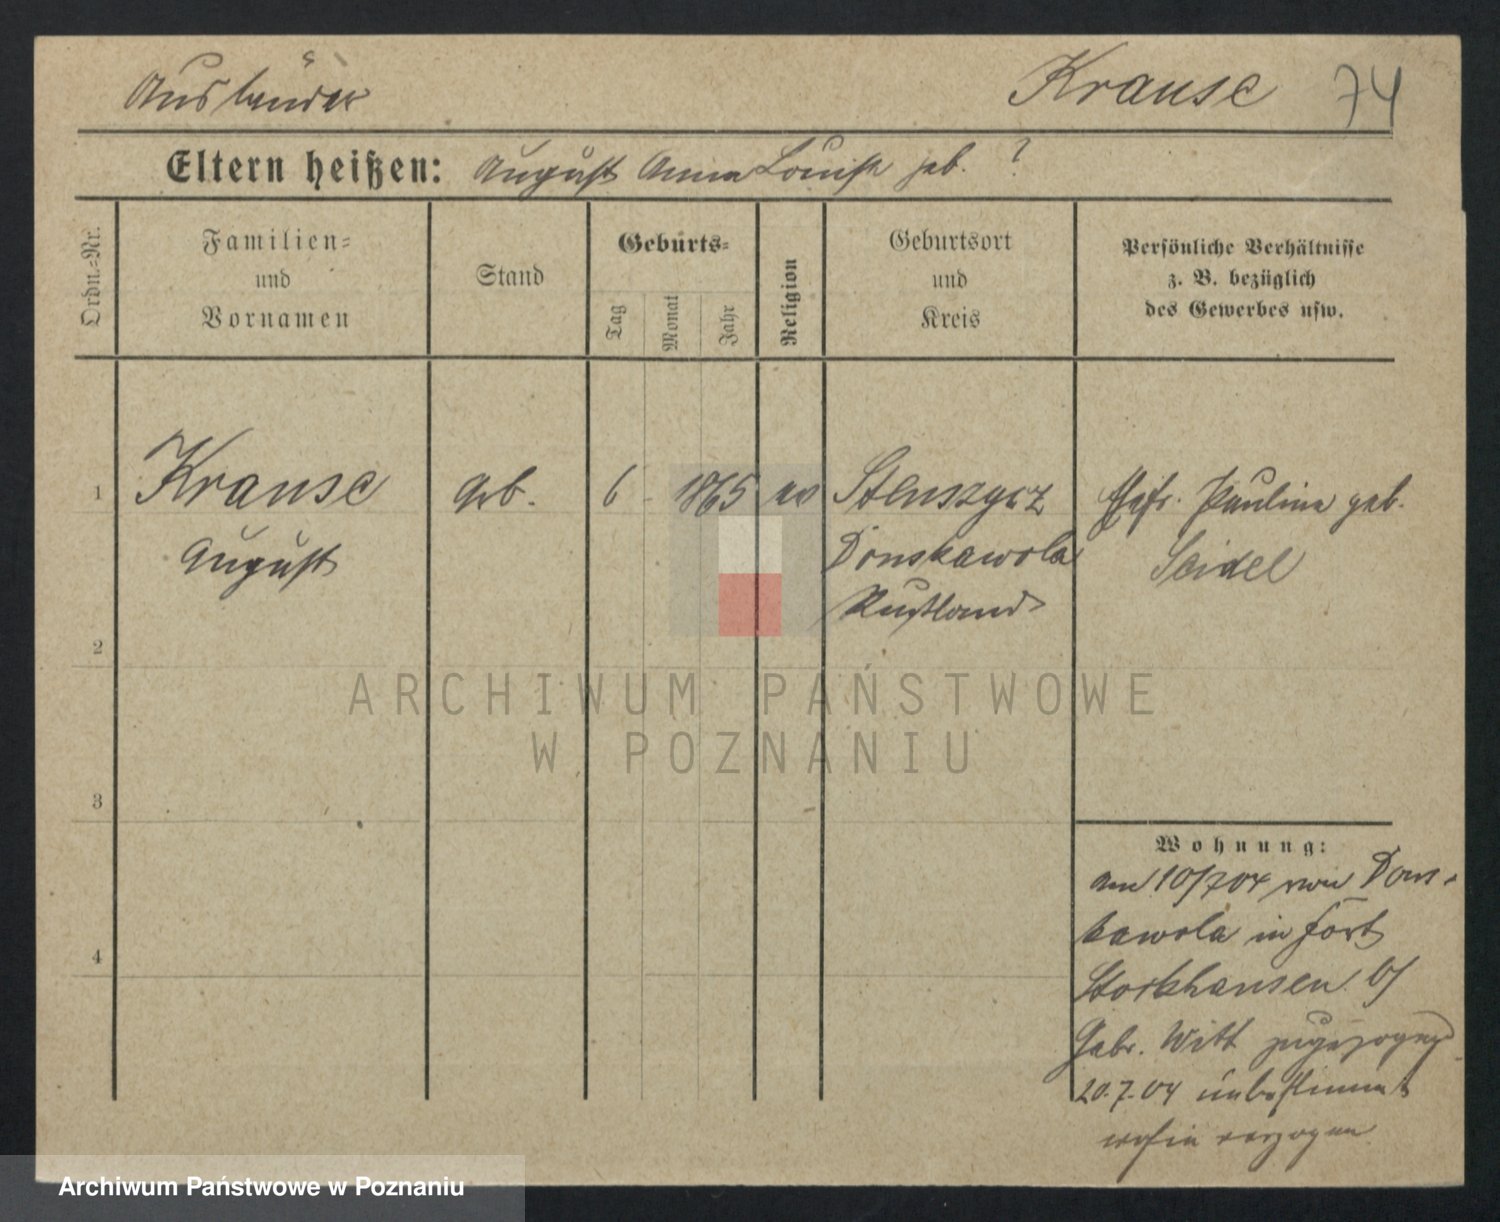 Ausländer
Krause 74
Eltern heißen: August Anna Louise geb. ?
Ordn.=Nr.
Familien=
und
Vornamen
Stand
Geburts=
Tag
Monat
Jahr
Religion
Geburtsort
und
Kreis
Persönliche Verhältnisse
z. B. bezüglich
des Gewerbes usw.
1 Krause Arb. 6 - 1865 ev Stenszysz Ehefr. Pauline geb.
August Donskawola Seidel
Rußland
2
3
4
ARCHIWUM PAŃSTWOWE
W POZNANIU
Wohnung:
am 10/7 04 von Dons-
kawola in Fort
Storkhausen b/
Gebr. Witt zugezogen
20.7.04 unbestimmt
wohin verzogen
Archiwum Państwowe w Poznaniu